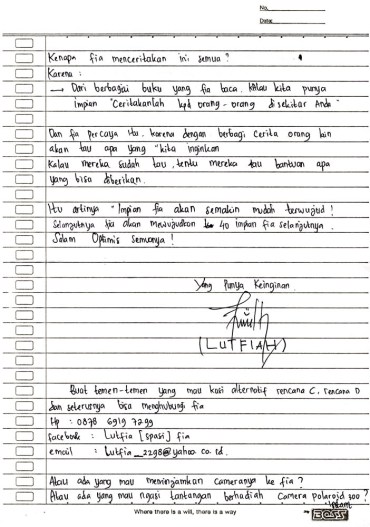 No.
Date.
Kenapa fia menceritakan ini semua ?
Karena :
→ Dari berbagai buku yang fia baca, kalau kita punya
impian "Ceritakanlah kpd orang-orang disekitar Anda"
Dan fia percaya itu. karena dengan berbagi cerita orang lain
akan tau apa yang "kita inginkan
Kalau mereka sudah tau, tentu mereka tau bantuan apa
yang bisa diberikan.
Itu artinya "Impian fia akan semakin mudah terwujud !
Selanjutnya fia akan mewujudkan 40 impian fia selanjutnya.
Salam Optimis semuanya !
Yang Punya Keinginan
(LUTFIAH)
Buat temen-temen yang mau kasi alternatif rencana C, rencana D
dan seterusnya bisa menghubungi fia
Hp : 0878 6919 7299
facebook : Lutfia [spasi] fia
email : Lutfia_2298@yahoo.co.id.
Atau ada yang mau meminjamkan cameranya ke fia ?
Atau ada yang mau ngasi tantangan berhadiah camera polaroid 300 ?
Instant
Where there is a will, there is a way
BOSS